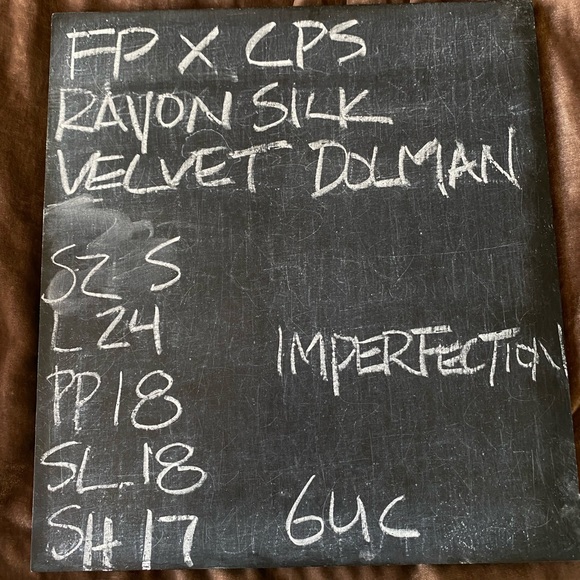 FP X CPS
RAYON SILK
VELVET DOLMAN
SZ S
L 24
IMPERFECTION
PP 18
SL 18
SH 17
GUC